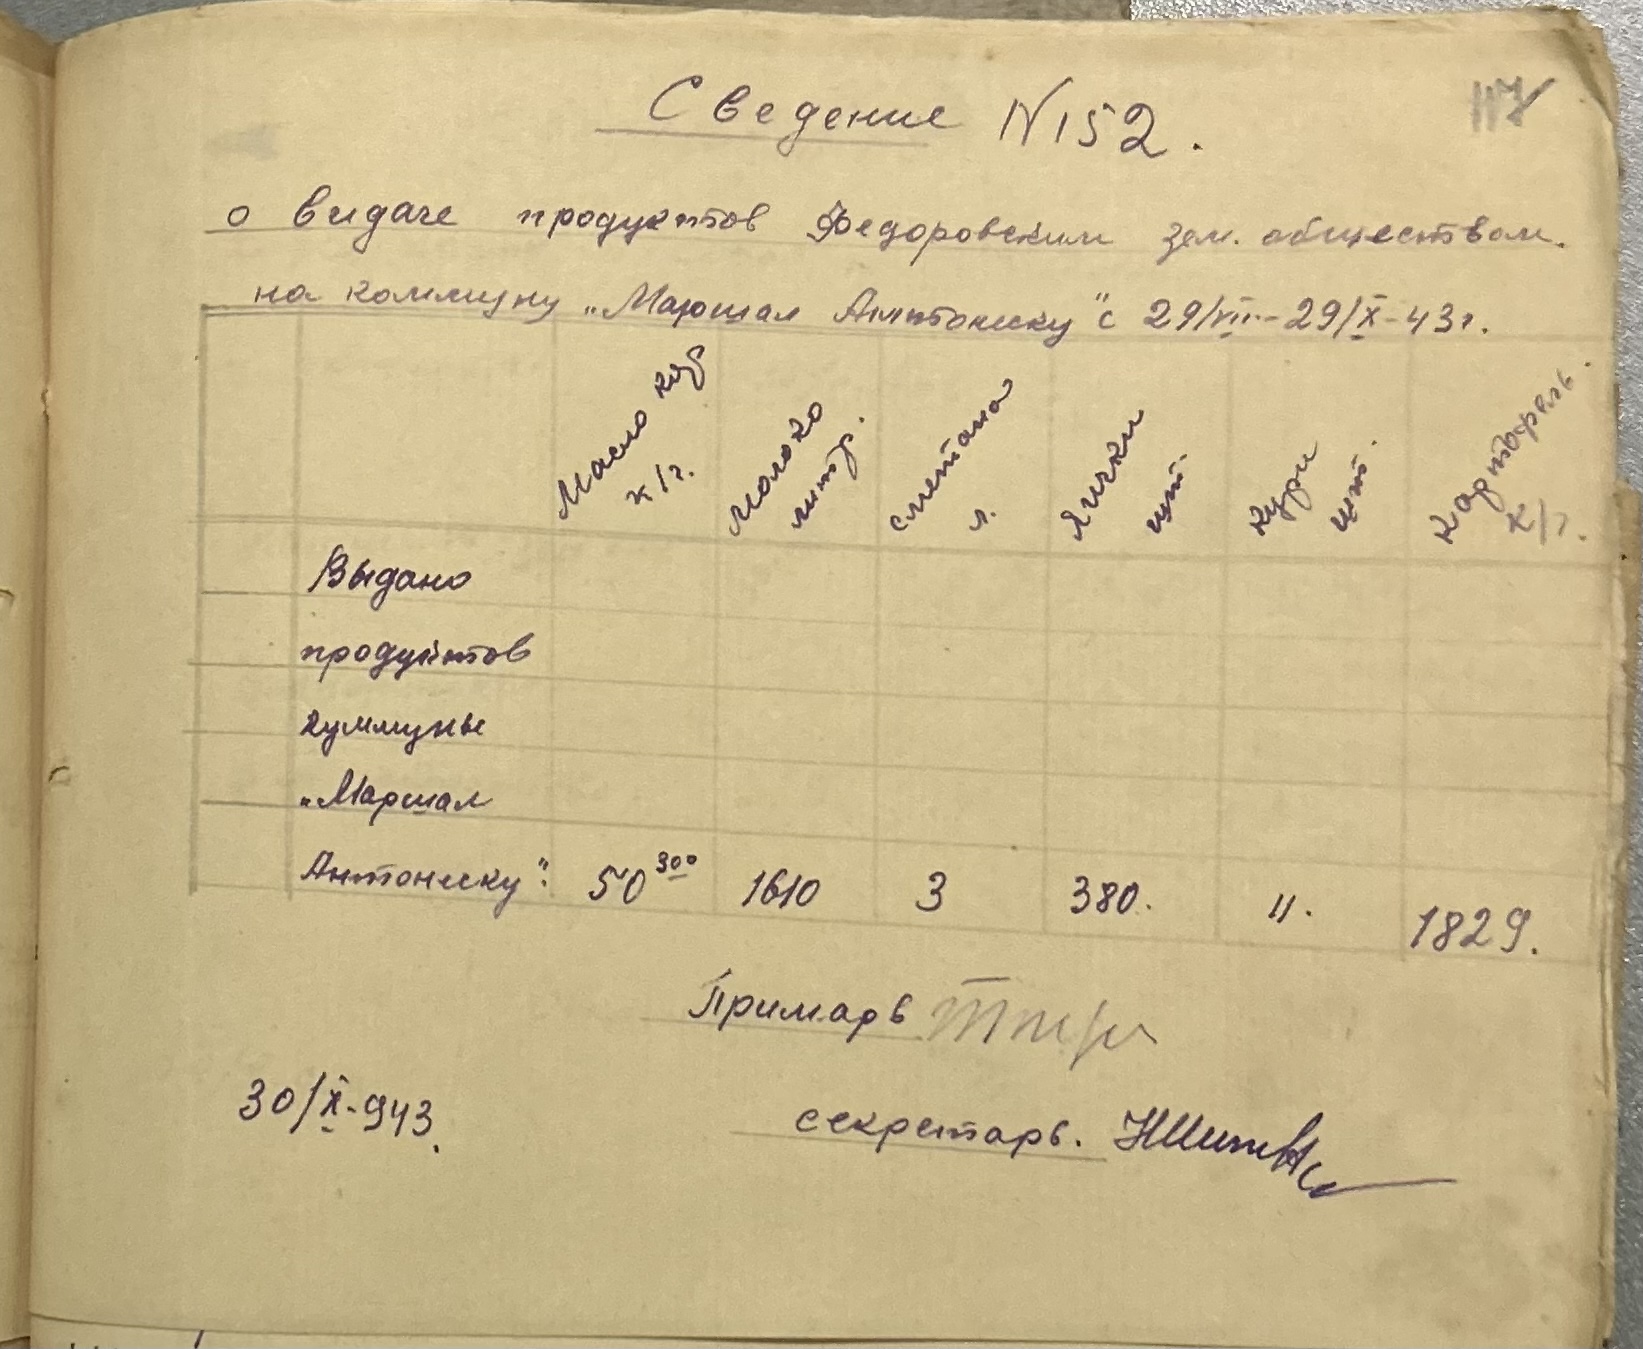 117
Сведение N152.
о видаче продуктов Федоровским зем. обществом.
на коммуну „Маршал Антонеску“ с 29/VII-29/X-43г.
Масло кор к/г.
Молоко литр.
сметана л.
Яички шт.
Кури шт.
Картофель. к/г.
Выдано
продуктов
куммуне
„Маршал
Антонеску“: 50 300 1610 3 380. 11. 1829.
Примарь
30/X-943.
секретарь.